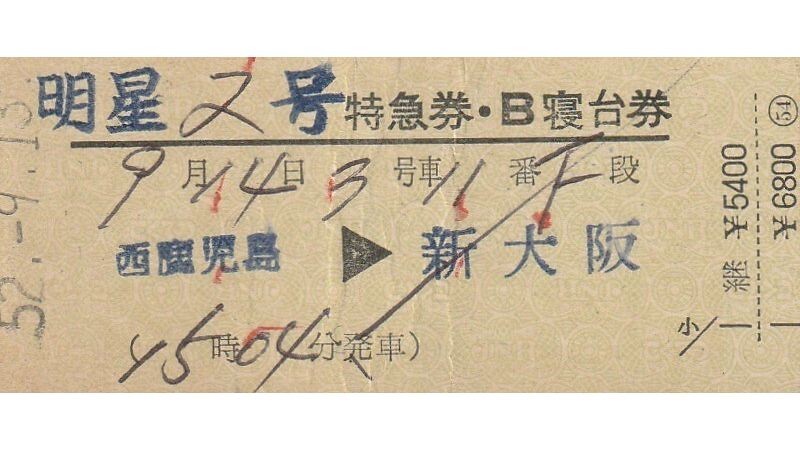 明星2号特急券・B寝台券
9月14日3号車11番下段
西鹿児島▶新大阪
(15時04分発車)
52.-9.13
継 ¥5400
¥6800 ㊴
小